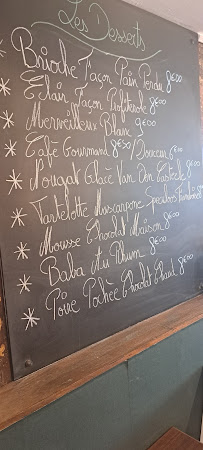 Les Desserts
* Brioche Façon Pain Perdu 8€00
* Eclair Façon Profiterole 8€00
* Merveilleux Blanc 9€00
* Café Gourmand 8€50 / Douceur
* Nougat Glacé Van Den Casteele
* Tartelotte Mascarpone Speculoos
* Mousse Chocolat Maison 8€00
* Baba Au Rhum 8€00
* Poire Pochée Chocolat Chaud 8€00